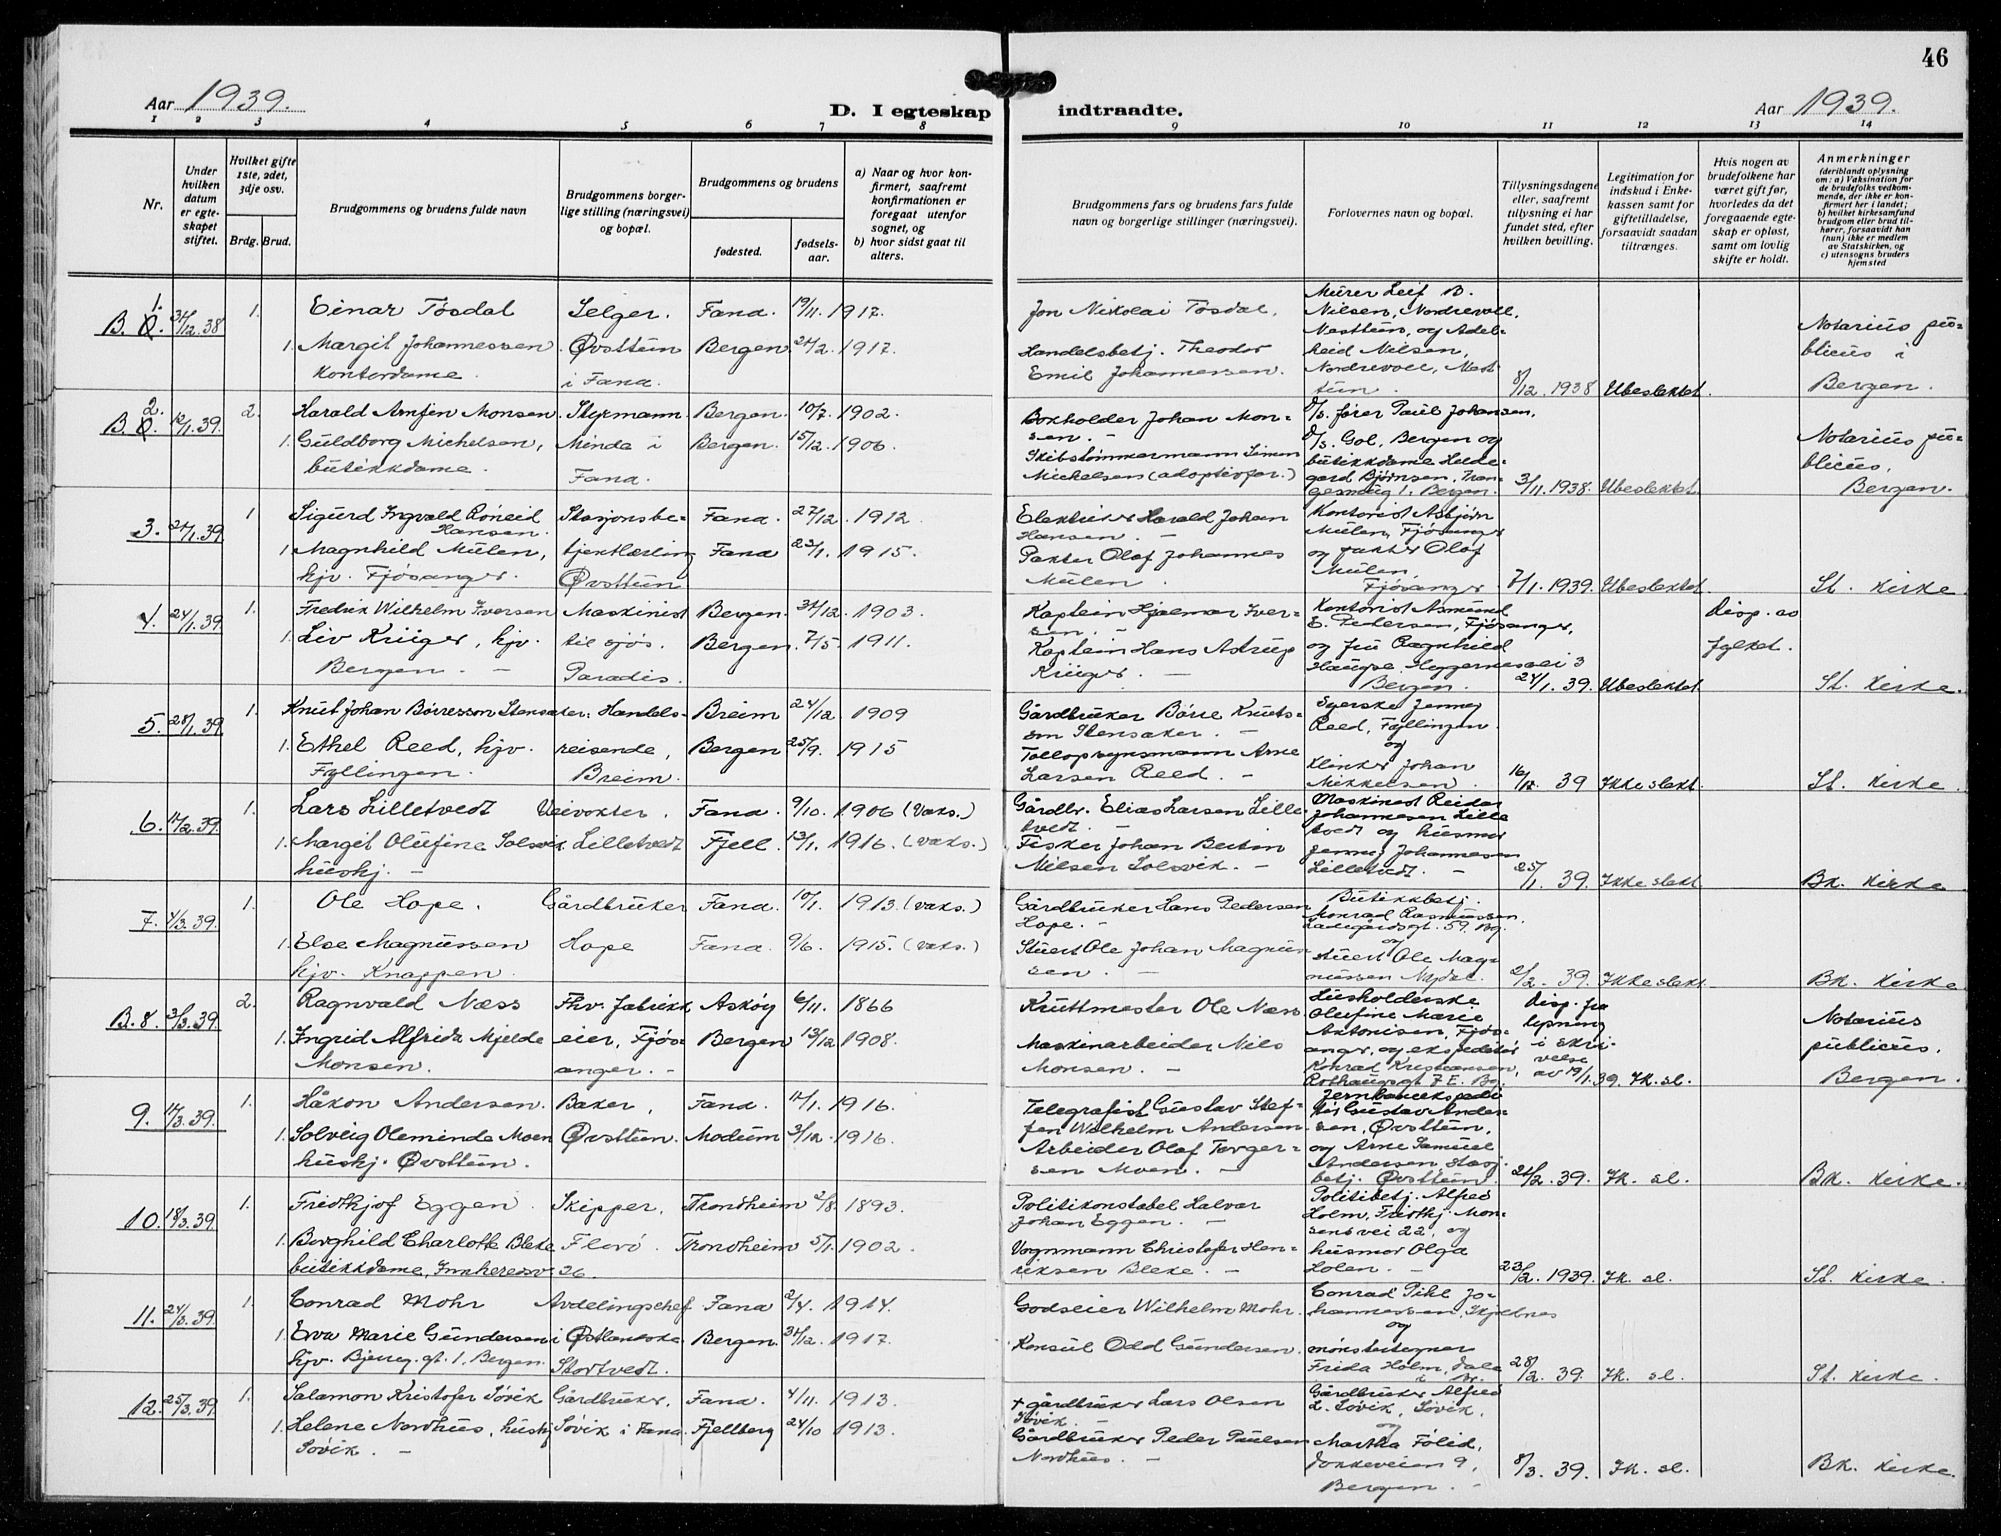 46
Aar 1939.
D. I egteskap indtraadte.
Aar 1939.
1 2 3 4 5 6 7 8 9 10 11 12 13 14
Nr.
Under hvilken datum er egteskapet stiftet.
Hvilket gifte 1ste, 2det, 3dje osv.
Brdg. Brud.
Brudgommens og brudens fulde navn
Brudgommens borgerlige stilling (næringsvei) og bopæl.
Brudgommens og brudens
fødested.
fødselsaar.
a) Naar og hvor konfirmert, saafremt konfirmationen er foregaat utenfor sognet, og
b) hvor sidst gaat til alters.
Brudgommens fars og brudens fars fulde navn og borgerlige stillinger (næringsvei).
Forlovernes navn og bopæl.
Tillysningsdagene eller, saafremt tillysning ei har fundet sted, efter hvilken bevilling.
Legitimation for indskud i Enkekassen samt for giftetilladelse, forsaavidt saadan tiltrænges.
Hvis nogen av brudefolkene har været gift før, hvorledes da det foregaaende egteskap er opløst, samt om lovlig skifte er holdt.
Anmerkninger (deriblandt oplysning om: a) Vaksination for de brudefolks vedkommende, der ikke er konfirmert her i landet; b) hvilket kirkesamfund brudgom eller brud tilhører, forsaavidt han (hun) ikke er medlem av Statskirken, og c) utensogns bruders hjemsted
B. 1. 31/12.38 1. Einar Tøsdal Selger. Fana. 19/11. 1917.
1. Margit Johannessen Øvsttun Bergen 21/2. 1917.
Kontordame. i Fana.
Jon Nikolai Tøsdal.
Handelsbetj. Theodor
Emil Johannessen.
Murer Leif B.
Nilsen, Nordrevoll,
Nesttun, og Adel-
heid Nilsen,
Nordrevoll, Nest-
tun.
8/12. 1938 Ubeslektet.
Notarius pu-
blicus i
Bergen.
B. 2. 12/1.39. 2. Harald Arnfin Monsen Styrmann. Bergen. 10/7. 1902.
1. Guldborg Michelsen, Minde i Bergen. 15/12. 1906.
butikkdame. Fana.
Boxholder Johan Mon-
sen.
Skibstømmermann Simon
Michelsen (adoptivfar.)
D/s. fører Paul Johansen,
D/s. Gol, Bergen og
butikkdame Hilde-
gard Bjørnsen,
Bergen.
3/11. 1938. Ubeslektet.
Notarius pu-
blicus,
Bergen.
3. 21/1.39 1 Sigurd Ingvald Røneid Stasjonsbe- Fana. 27/12. 1912
Hansen.
1. Magnhild Mulen, tjentlærling Fana 23/1. 1915.
hjv. Fjøsanger. Øvsttun
Harald Johan
Hansen.
Pakter Olaf Johannes
Mulen.
Kontorist Asbjørn
Mulen, Fjøsanger
og pakter Olaf
Mulen
Fjøsanger
7/1. 1939. Ubeslektet.
St. kirke.
4. 24/1.39. 1. Fredrik Wilhelm Iversen Maskinist Bergen. 31/12. 1903.
1. Liv Krüger, hjv. til sjøs. Bergen. 7/5. 1911.
Bergen. Paradis.
Kaptein Hjalmar Iver-
sen.
Kaptein Hans Astrup
Krüger.
Kontorist Asmund
E. Pedersen, Fjøsanger,
og fru Ragnhild
Hauge, Heggernesvei 3
Bergen.
24/1. 39. Ubeslektet
Disp. av
fylket.
St. kirke.
5. 28/1.39 1. Knut Johan Børresson Stensaker. Handels- Breim 24/12 1909
1. Ethel Reed, hjv. reisende, Bergen 25/9. 1915
Fyllingen. Breim.
Gårdbruker Børre Knuts-
son Stensaker.
Tollopsynsmann Arne
Larsen Reed.
Syerske Jenny
Reed, Fyllingen
og
Klinker Johan
Mikkelsen.
16/12 39 Ikke slekt.
St. kirke.
6. 11/2.39. 1. Lars Lilletvedt Veivokter. Fana. 9/10. 1906 (Vaks.)
1. Margit Olufine Solsvik Lilletvedt Fjell. 13/1. 1916. (vaks.)
huskj.
Gårdbr. Elias Larsen Lille-
tvedt.
Fisker Johan Bertin
Nilsen Solsvik.
Maskinist Reidar
Johannesen Lille-
tvedt og husmor
Jenny Johannesen
Lilletvedt.
25/1. 39. Ikke slekt
Bk. kirke
7. 4/3.39. 1. Ole Hope. Gårdbruker Fana. 10/1. 1913. (vaks.)
1. Else Magnussen Hope Fana. 9/6. 1915. (vaks.)
hjv. Knappen.
Gårdbruker Hans Pedersen
Hope.
Stuert Ole Johan Magnus-
sen.
Butikkbetj.
Monrad Rasmussen,
Ladegårdsgt. 59. Bg.
og
stuert Ole Mag-
nussen Nydal.
2/2. 39. Ikke slekt.
Bk. kirke.
B. 8. 3/3.39. 2. Ragnvald Næss Fhv. fabrikk Askøy 6/11. 1866
1. Ingrid Alfrida Mjelde eier, Fjøs- Bergen 13/12 1908.
Monsen. anger.
Kruttmester Ole Næss
Maskinarbeider Nils
Monsen.
Lusholderske
Olufine Marie
Antonisen, Fjøs-
anger, og ekspeditør
Konrad Kristiansen,
Rothaugsgt. 7 E. Bg.
Disp. fra
lysning
i skri-
velse
av 19/1.39. Ik. sl.
Notarius
publicus.
Bergen.
9. 11/3.39. 1. Håkon Andersen. Baker, Fana. 12/1. 1916.
1. Solveig Oleminde Moen Øvsttun. Modum 3/12. 1916.
huskj. Øvsttun.
Telegrafist Gustav Stef-
fen Wilhelm Andersen.
Arbeider Olaf Torger-
sen Moen.
Jernbaneekspedi-
tør Gustav Ander-
sen, Øvsttun,
og Arne Samuel
Andersen, Stasj.
betj. Øvsttun.
21/2. 39. Ik. sl.
Bk. kirke.
10. 18/3.39. 1. Fridthjof Eggen Skipper, Trondheim 2/8. 1893.
1. Borghild Charlotte Bleke Florø. Trondheim 5/1. 1902.
butikkdame, Innheredsv. 26.
Politikonstabel Halvar
Johan Eggen.
Vognmann Christofer Hen-
riksen Bleke.
Politibetj. Alfred
Holm, Fridthj. Mon-
sens vei 22, og
husmor Olga
Holen.
23/2. 1939. Ik. sl.
St. kirke.
11. 24/3.39 1. Conrad Mohr Avdelingschef Fana 2/4. 1914.
1. Eva Marie Gundersen i Østlandske Bergen. 31/12. 1917.
hjv. Bjerreg. gt. 1. Bergen. Stortvedt.
Godseier Wilhelm Mohr.
Konsul Odd Gundersen.
Conrad Pihl Jo-
hannessen, Skjoldnes
og
mønstertegner
Frida Holm, Dale
i Br.
28/2. 39. Ik. sl.
St. kirke.
12. 25/3.39 1. Salamon Kristofer Søvik Gårdbruker, Fana. 4/11. 1913.
1. Helene Nordhus, huskj Søvik i Fana. Fjellberg 24/10 1913.
Søvik.
+ gårdbruker Lars Olsen
Søvik.
Gårdbruker Peder Paulsen
Nordhus.
Gårdbruker Alfred
L. Søvik, Søvik,
og
Martha Følid,
Dokkeveien 9,
Bergen.
8/3. 39. Ik. sl.
Bk. kirke.